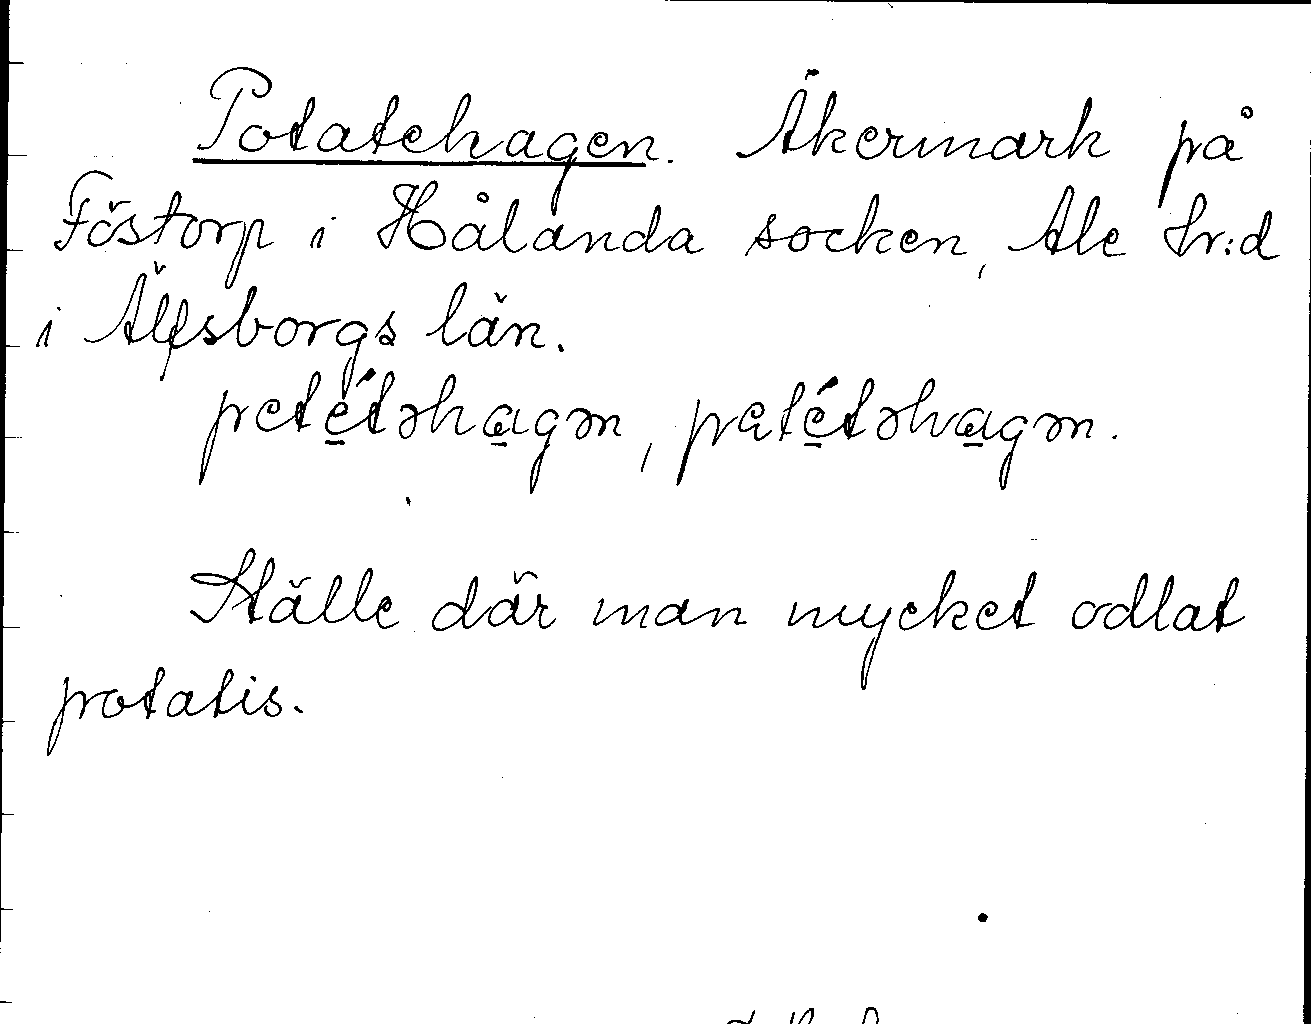 Potatehagen. Åkermark på
Föstorp i Hålanda socken, Ale hr:d
i Älfsborgs län.
petétəhagən, patétəhagən.
Ställe där man mycket odlat
potatis.